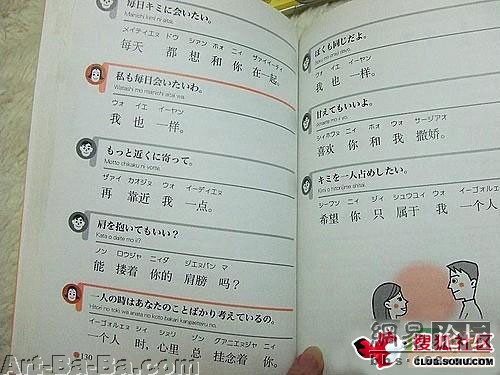 毎日キミに会いたい。
Mainichi kimi ni aitai.
メイティエヌ ドウ シアン ホォ ニィ ザァイイーティ
每天 都 想 和 你 在一起。
私も毎日会いたいわ。
Watashi mo mainichi aitai wa.
ウォ イエ イーヤン
我 也 一样。
もっと近くに寄って。
Motto chikaku ni yotte.
ザァイ カオジヌ ウォ イーディエヌ
再 靠近 我 一点。
肩を抱いてもいい?
Kata o daite mo ii?
ノン ロウジャ ニィダ ジエヌバン マ
能 搂着 你的 肩膀 吗?
一人の時はあなたのことばかり考えているの。
Hitori no toki wa anata no koto bakari kangaeteru no.
イーゴォルエヌ シィ シヌリ ゾン グアニエヌジャ ニィ
一个人 时,心里 总 挂念着 你。
130
ぼくも同じだよ。
Boku mo onaji dayo.
ウォ イエ イーヤン
我 也 一样。
甘えてもいいよ。
シィホワヌ ニィ ホォ ウォ サージアオ
喜欢 你 和 我 撒娇。
キミを一人占めしたい。
Kimi o hitorijime shitai.
シーワン ニィ ジィ シュウユイ ウォ イーゴォルエヌ
希望 你 只 属于 我 一个人
Art-Ba-Ba.com
搜狐社区
CLUB.SOHU.COM